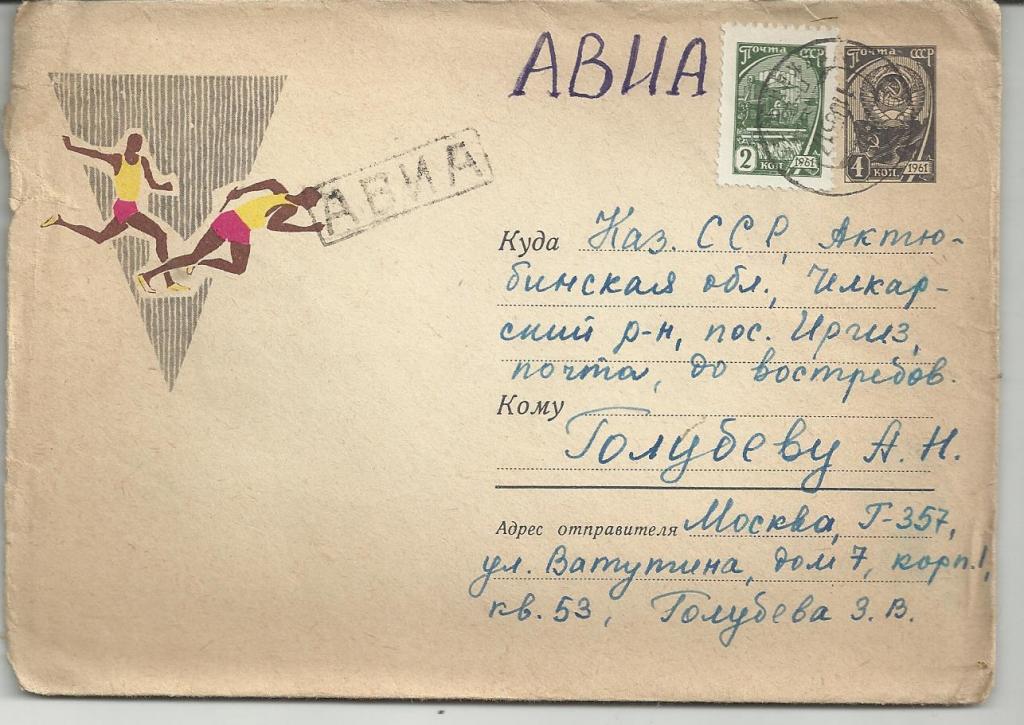 АВИА
Почта СССР
2 коп. 1961
Почта СССР
4 коп. 1961
АВИА
Куда Каз. ССР, Актю-
бинская обл., Челкар-
ский р-н, пос. Иргиз,
почта, до востребов.
Кому
Голубеву А. Н.
Адрес отправителя Москва, Г-357,
ул. Ватутина, дом 7, корп. 1,
кв. 53, Голубева З. В.